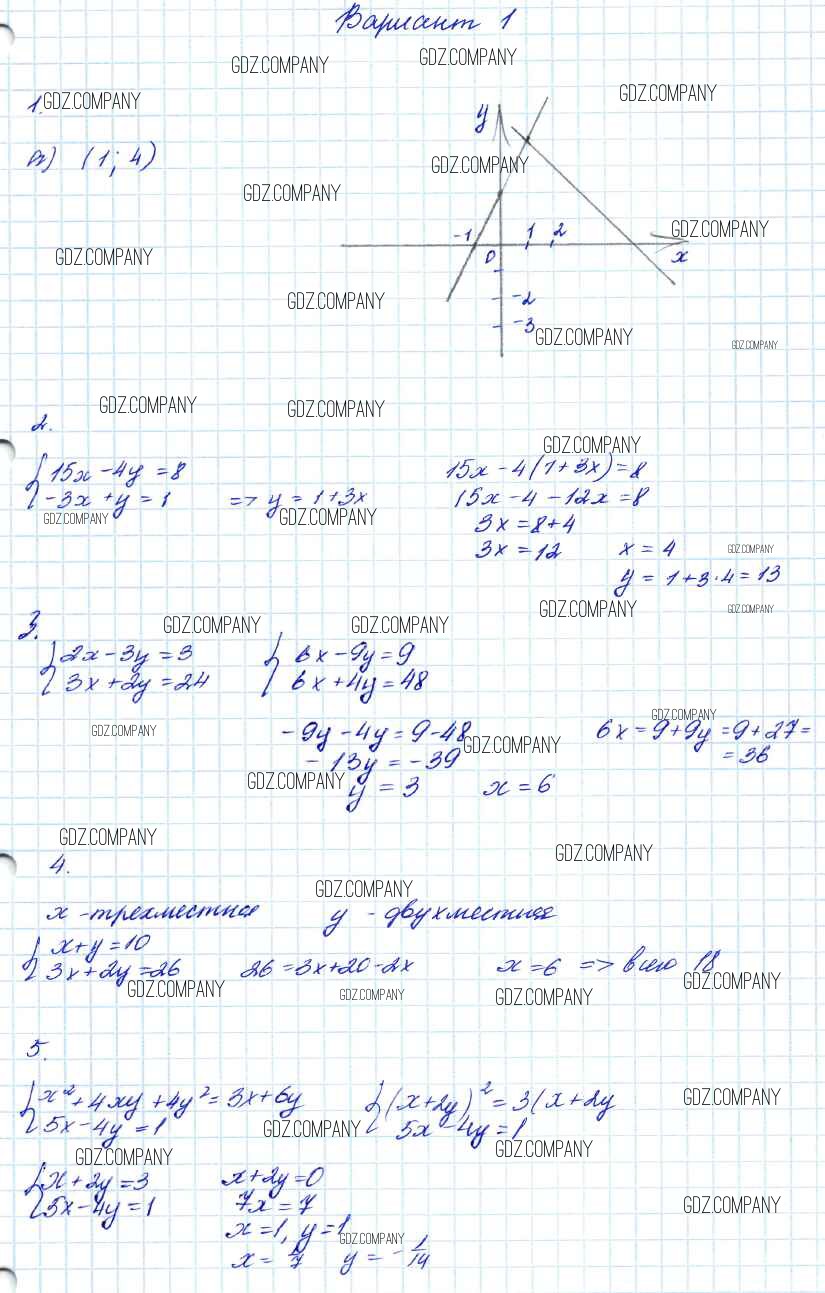 Вариант 1
GDZ.COMPANY GDZ.COMPANY
1. GDZ.COMPANY GDZ.COMPANY
y
а) (1; 4) GDZ.COMPANY
GDZ.COMPANY
-1 1 2 GDZ.COMPANY
GDZ.COMPANY 0 x
GDZ.COMPANY -2
-3 GDZ.COMPANY GDZ.COMPANY
GDZ.COMPANY GDZ.COMPANY
2.
GDZ.COMPANY
{ 15x - 4y = 8 15x - 4(1 + 3x) = 8
-3x + y = 1 => y = 1 + 3x 15x - 4 - 12x = 8
GDZ.COMPANY GDZ.COMPANY 3x = 8 + 4
3x = 12 x = 4 GDZ.COMPANY
y = 1 + 3 · 4 = 13
GDZ.COMPANY GDZ.COMPANY
3. GDZ.COMPANY GDZ.COMPANY
{ 2x - 3y = 3 { 6x - 9y = 9
3x + 2y = 24 6x + 4y = 48
GDZ.COMPANY
GDZ.COMPANY -9y - 4y = 9 - 48 6x = 9 + 9y = 9 + 27 =
GDZ.COMPANY = 36
-13y = -39
GDZ.COMPANY y = 3 x = 6
GDZ.COMPANY
4. GDZ.COMPANY
GDZ.COMPANY
x - трехместная y - двухместная
{ x + y = 10
3x + 2y = 26 26 = 3x + 20 - 2x x = 6 => всего 18
GDZ.COMPANY GDZ.COMPANY GDZ.COMPANY GDZ.COMPANY
5.
{ x² + 4xy + 4y² = 3x + 6y { (x + 2y)² = 3(x + 2y GDZ.COMPANY
5x - 4y = 1 GDZ.COMPANY 5x - 4y = 1
GDZ.COMPANY GDZ.COMPANY
{ x + 2y = 3 x + 2y = 0
5x - 4y = 1 7x = 7 GDZ.COMPANY
x = 1, y = 1
GDZ.COMPANY
x = 1/7 y = -1/14